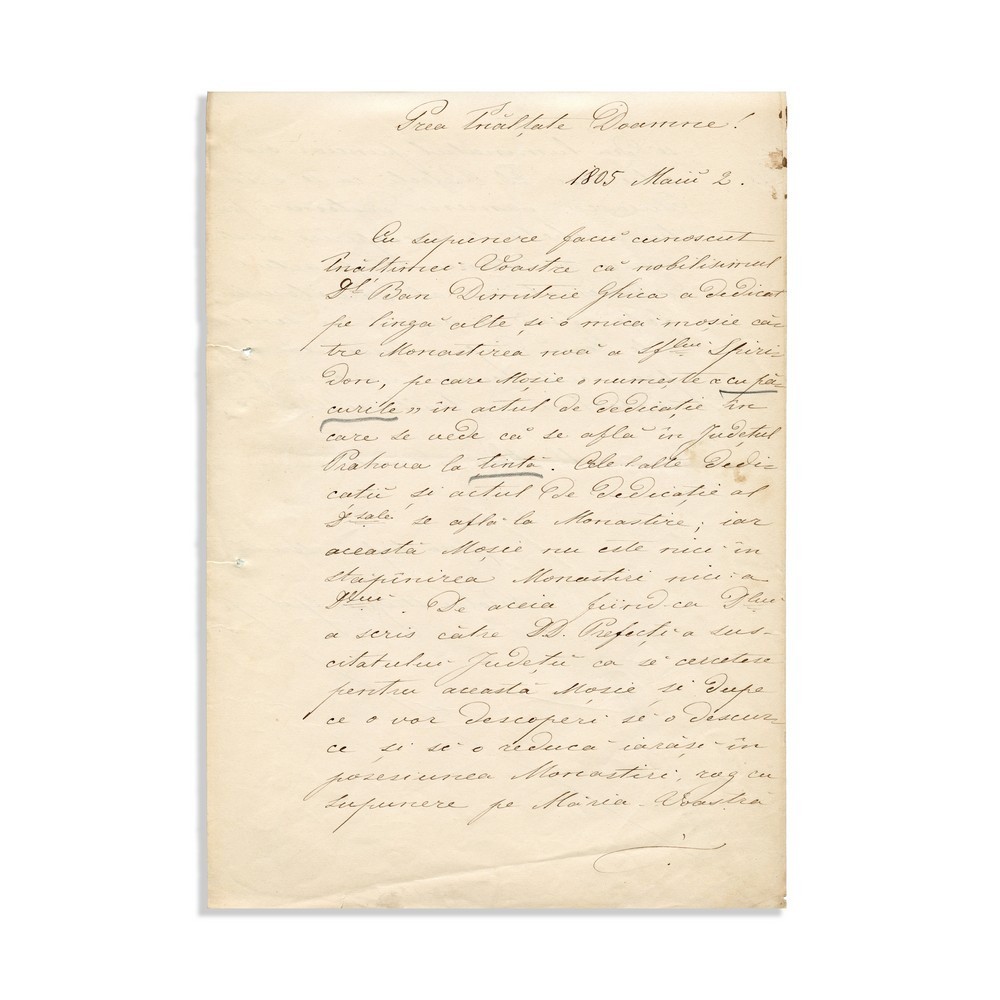 Prea Înălțate Doamne!
1805 Maiŭ 2.
Cu supunere facŭ cunoscut
Înăltimei Voastre că nobilisimul
Dl Ban Dimitrie Ghica a dedicat
pe lingă alte și o mică moșie că-
tre Monastirea noă a Sflui Spiri-
don, pe care Moșie o numește «cu pă-
curile» în actul de dedicație în
care se vede că se află în Județul
Prahova la țintă. Cele lalte dedi-
cații și actul de dedicație al
Dsale se află la Monastire; iar
această Moșie nu este nici în
stăpînirea Monastiri nici a
Dlui. De aceia fiind-ca Dlui
a scris către D.D. Prefecți a sus-
citatului Județŭ ca sĕ cerceteze
pentru această Moșie și dupe
ce o vor descoperi sĕ o descur-
ce și sĕ o reducă iarăși în
posesiunea Monastiri, rog cu
supunere pe Măria Voastră